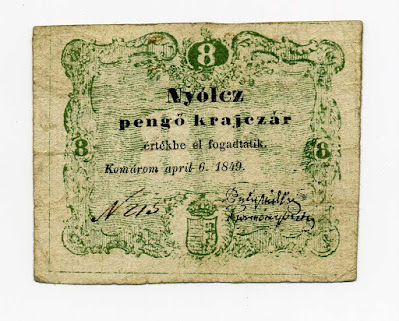 8
Nyólcz
pengő krajczár
értékbe él fogadtatik.
8 8
Komárom april 6. 1849.